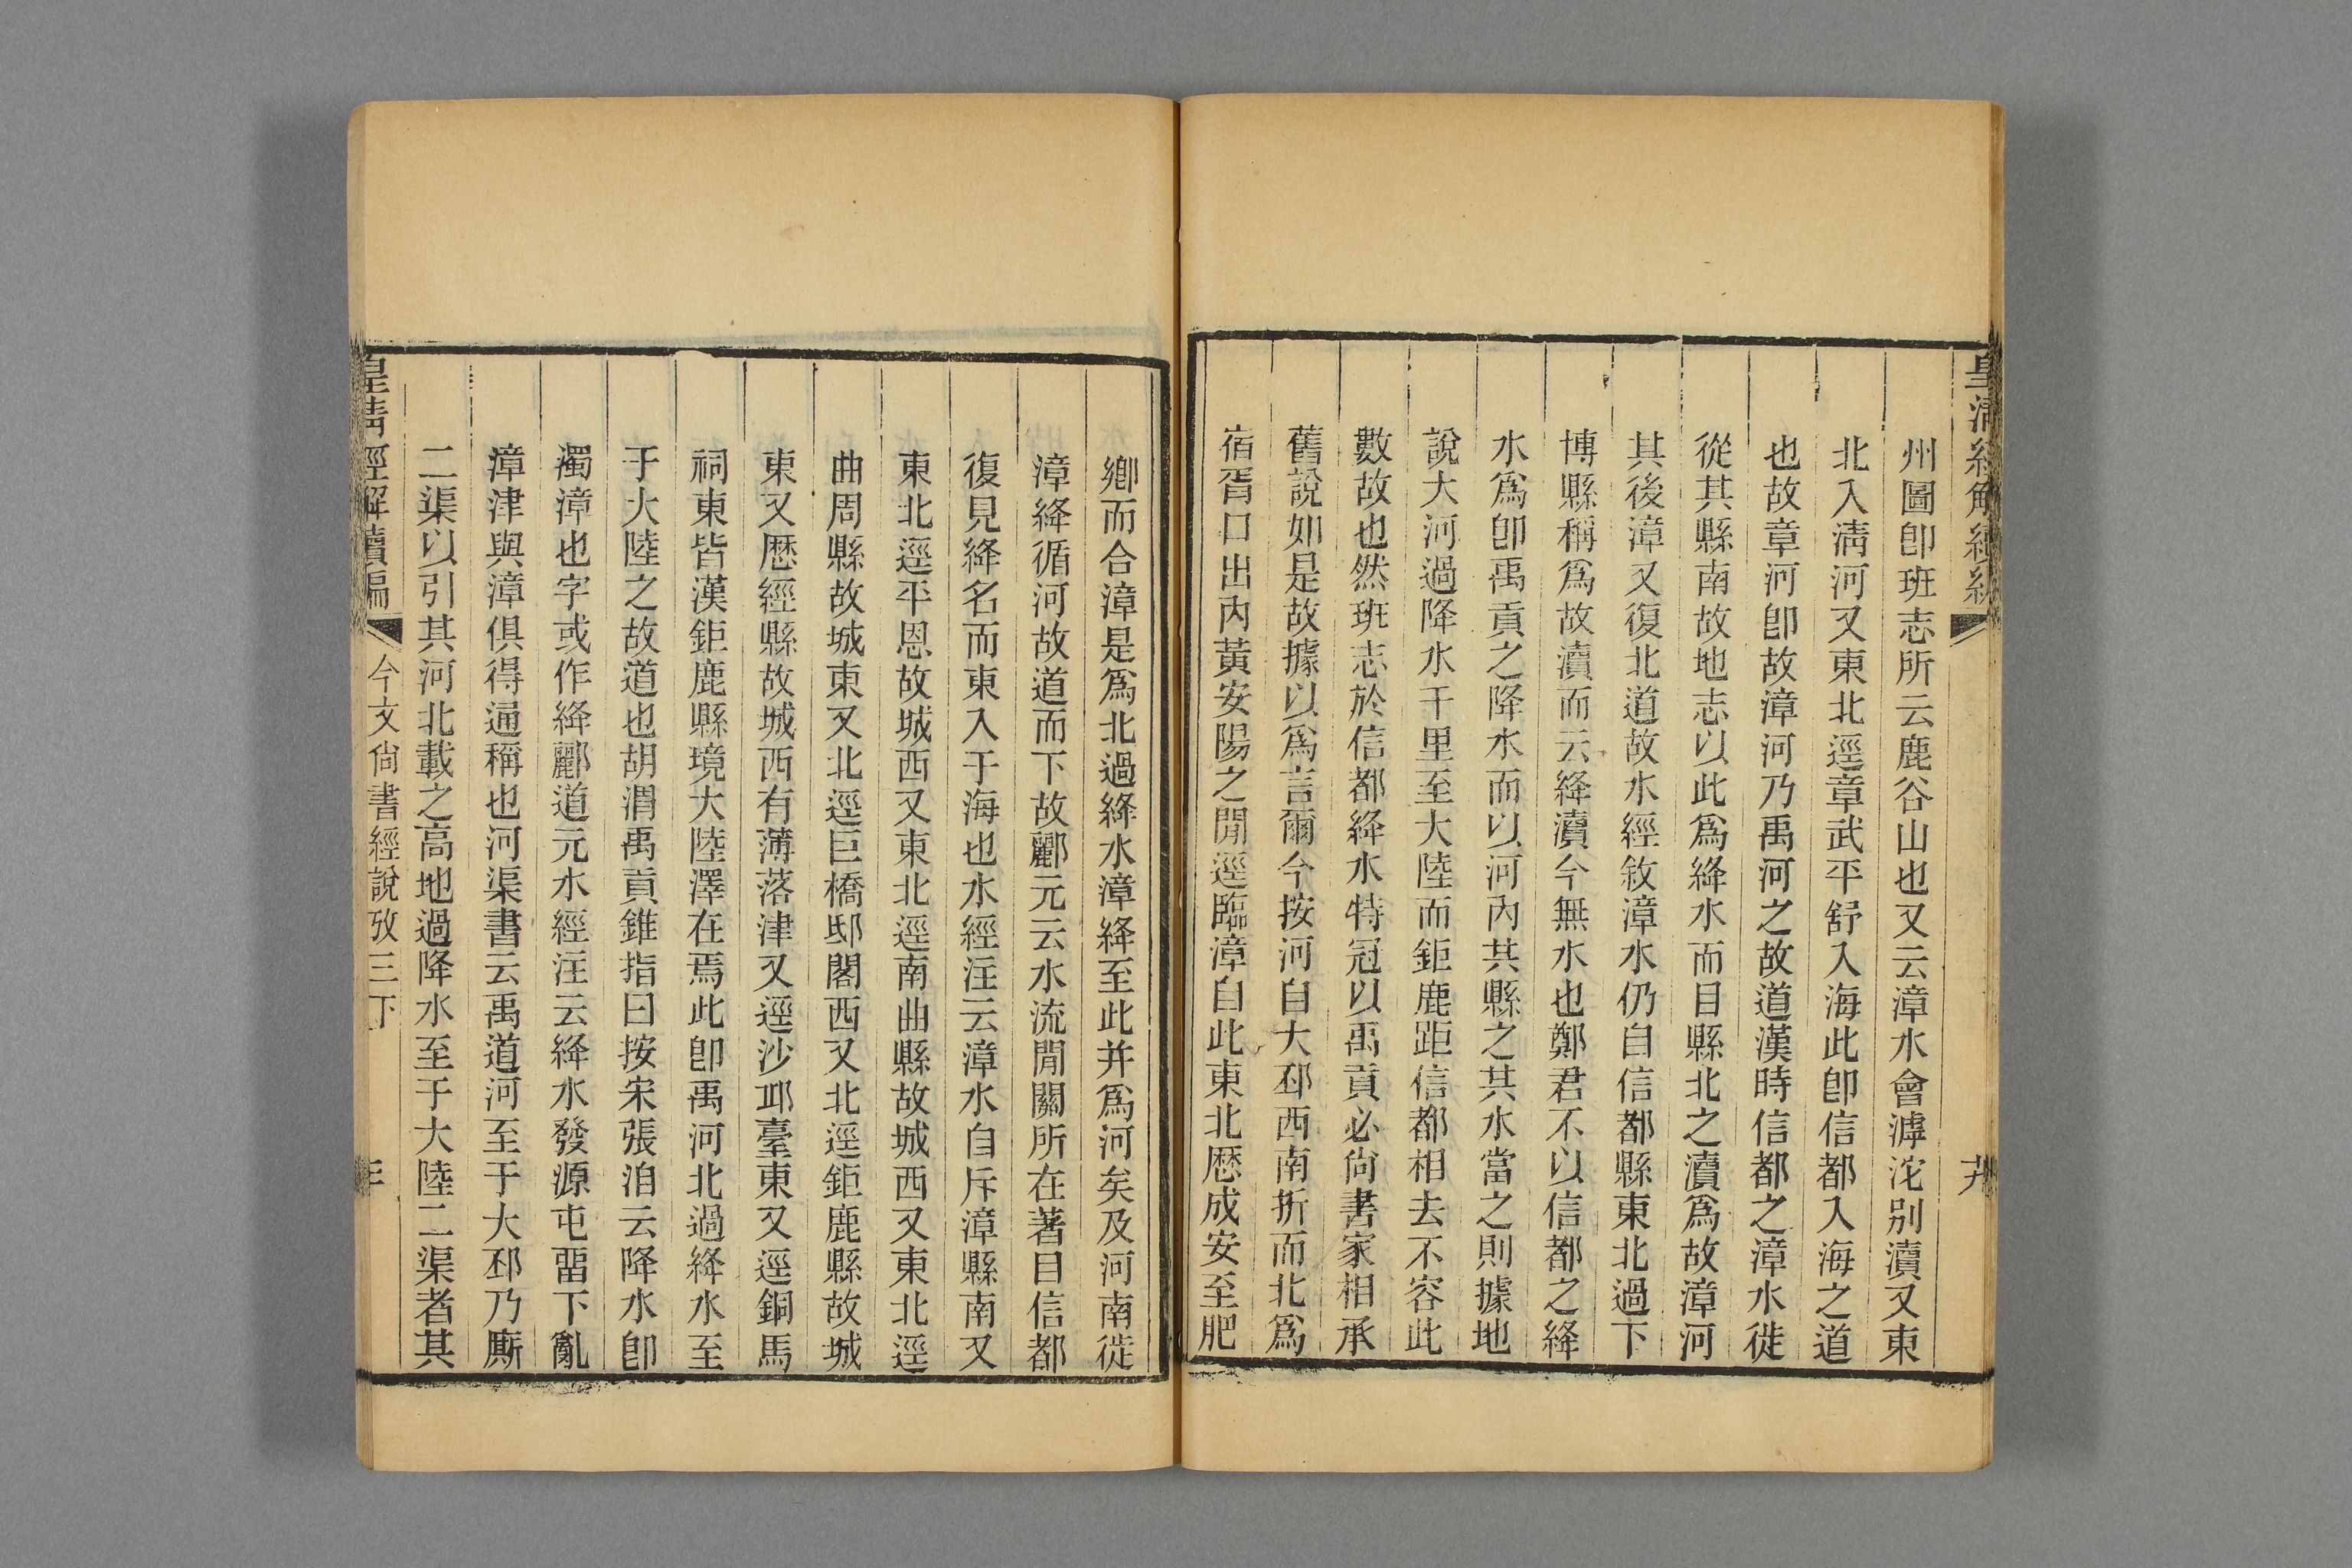 州圖卽班志所云鹿谷山也又云漳水會滹沱別瀆又東
北入淸河又東北逕章武平舒入海此卽信都入海之道
也故章河卽故漳河乃禹河之故道漢時信都之漳水徙
從其縣南故地志以此爲絳水而目縣北之瀆爲故漳河
其後漳又復北道故水經敘漳水仍自信都縣東北過下
博縣稱爲故瀆而云絳瀆今無水也鄭君不以信都之絳
水爲卽禹貢之降水而以河內其縣之其水當之則據地
說大河過降水千里至大陸而鉅鹿距信都相去不容此
數故也然班志於信都絳水特冠以禹貢必尙書家相承
舊說如是故據以爲言爾今按河自大邳西南折而北爲
宿胥口出內黃安陽之閒逕臨漳自此東北歷成安至肥
鄉而合漳是爲北過絳水漳絳至此并爲河矣及河南徙
漳絳循河故道而下故酈元云水流閒關所在著目信都
復見絳名而東入于海也水經注云漳水自斥漳縣南又
東北逕平恩故城西又東北逕南曲縣故城西又東北逕
曲周縣故城東又北逕巨橋邸閣西又北逕鉅鹿縣故城
東又歷經縣故城西有薄落津又逕沙邱臺東又逕銅馬
祠東皆漢鉅鹿縣境大陸澤在焉此卽禹河北過絳水至
于大陸之故道也胡渭禹貢錐指曰按宋張洎云降水卽
濁漳也字或作絳酈道元水經注云絳水發源屯留下亂
漳津與漳俱得通稱也河渠書云禹道河至于大邳乃廝
二渠以引其河北載之高地過降水至于大陸二渠者其
皇淸經解續編
今文尙書經說攷三下